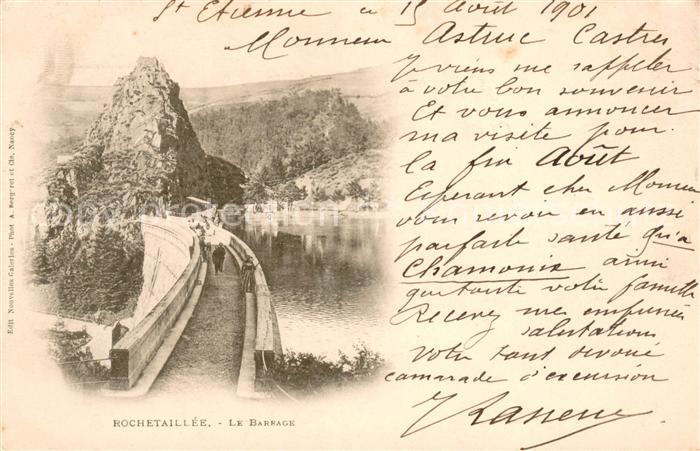 St Etienne ce 15 Août 1901
Monsieur Astruc Castres
Je viens me rappeler
à votre bon souvenir
Et vous annoncer
ma visite pour
la fin Août
Esperant cher Monsieur
vous revoir en aussi
parfaite santé qu'a
Chamonix ainsi
que toute votre famille
Recevez mes empressées
salutations
Votre tout devoué
camarade d'excursion
Edit Nouvelles Galeries - Phot A. et Cie, Nancy
ROCHETAILLÉE. - LE BARRAGE